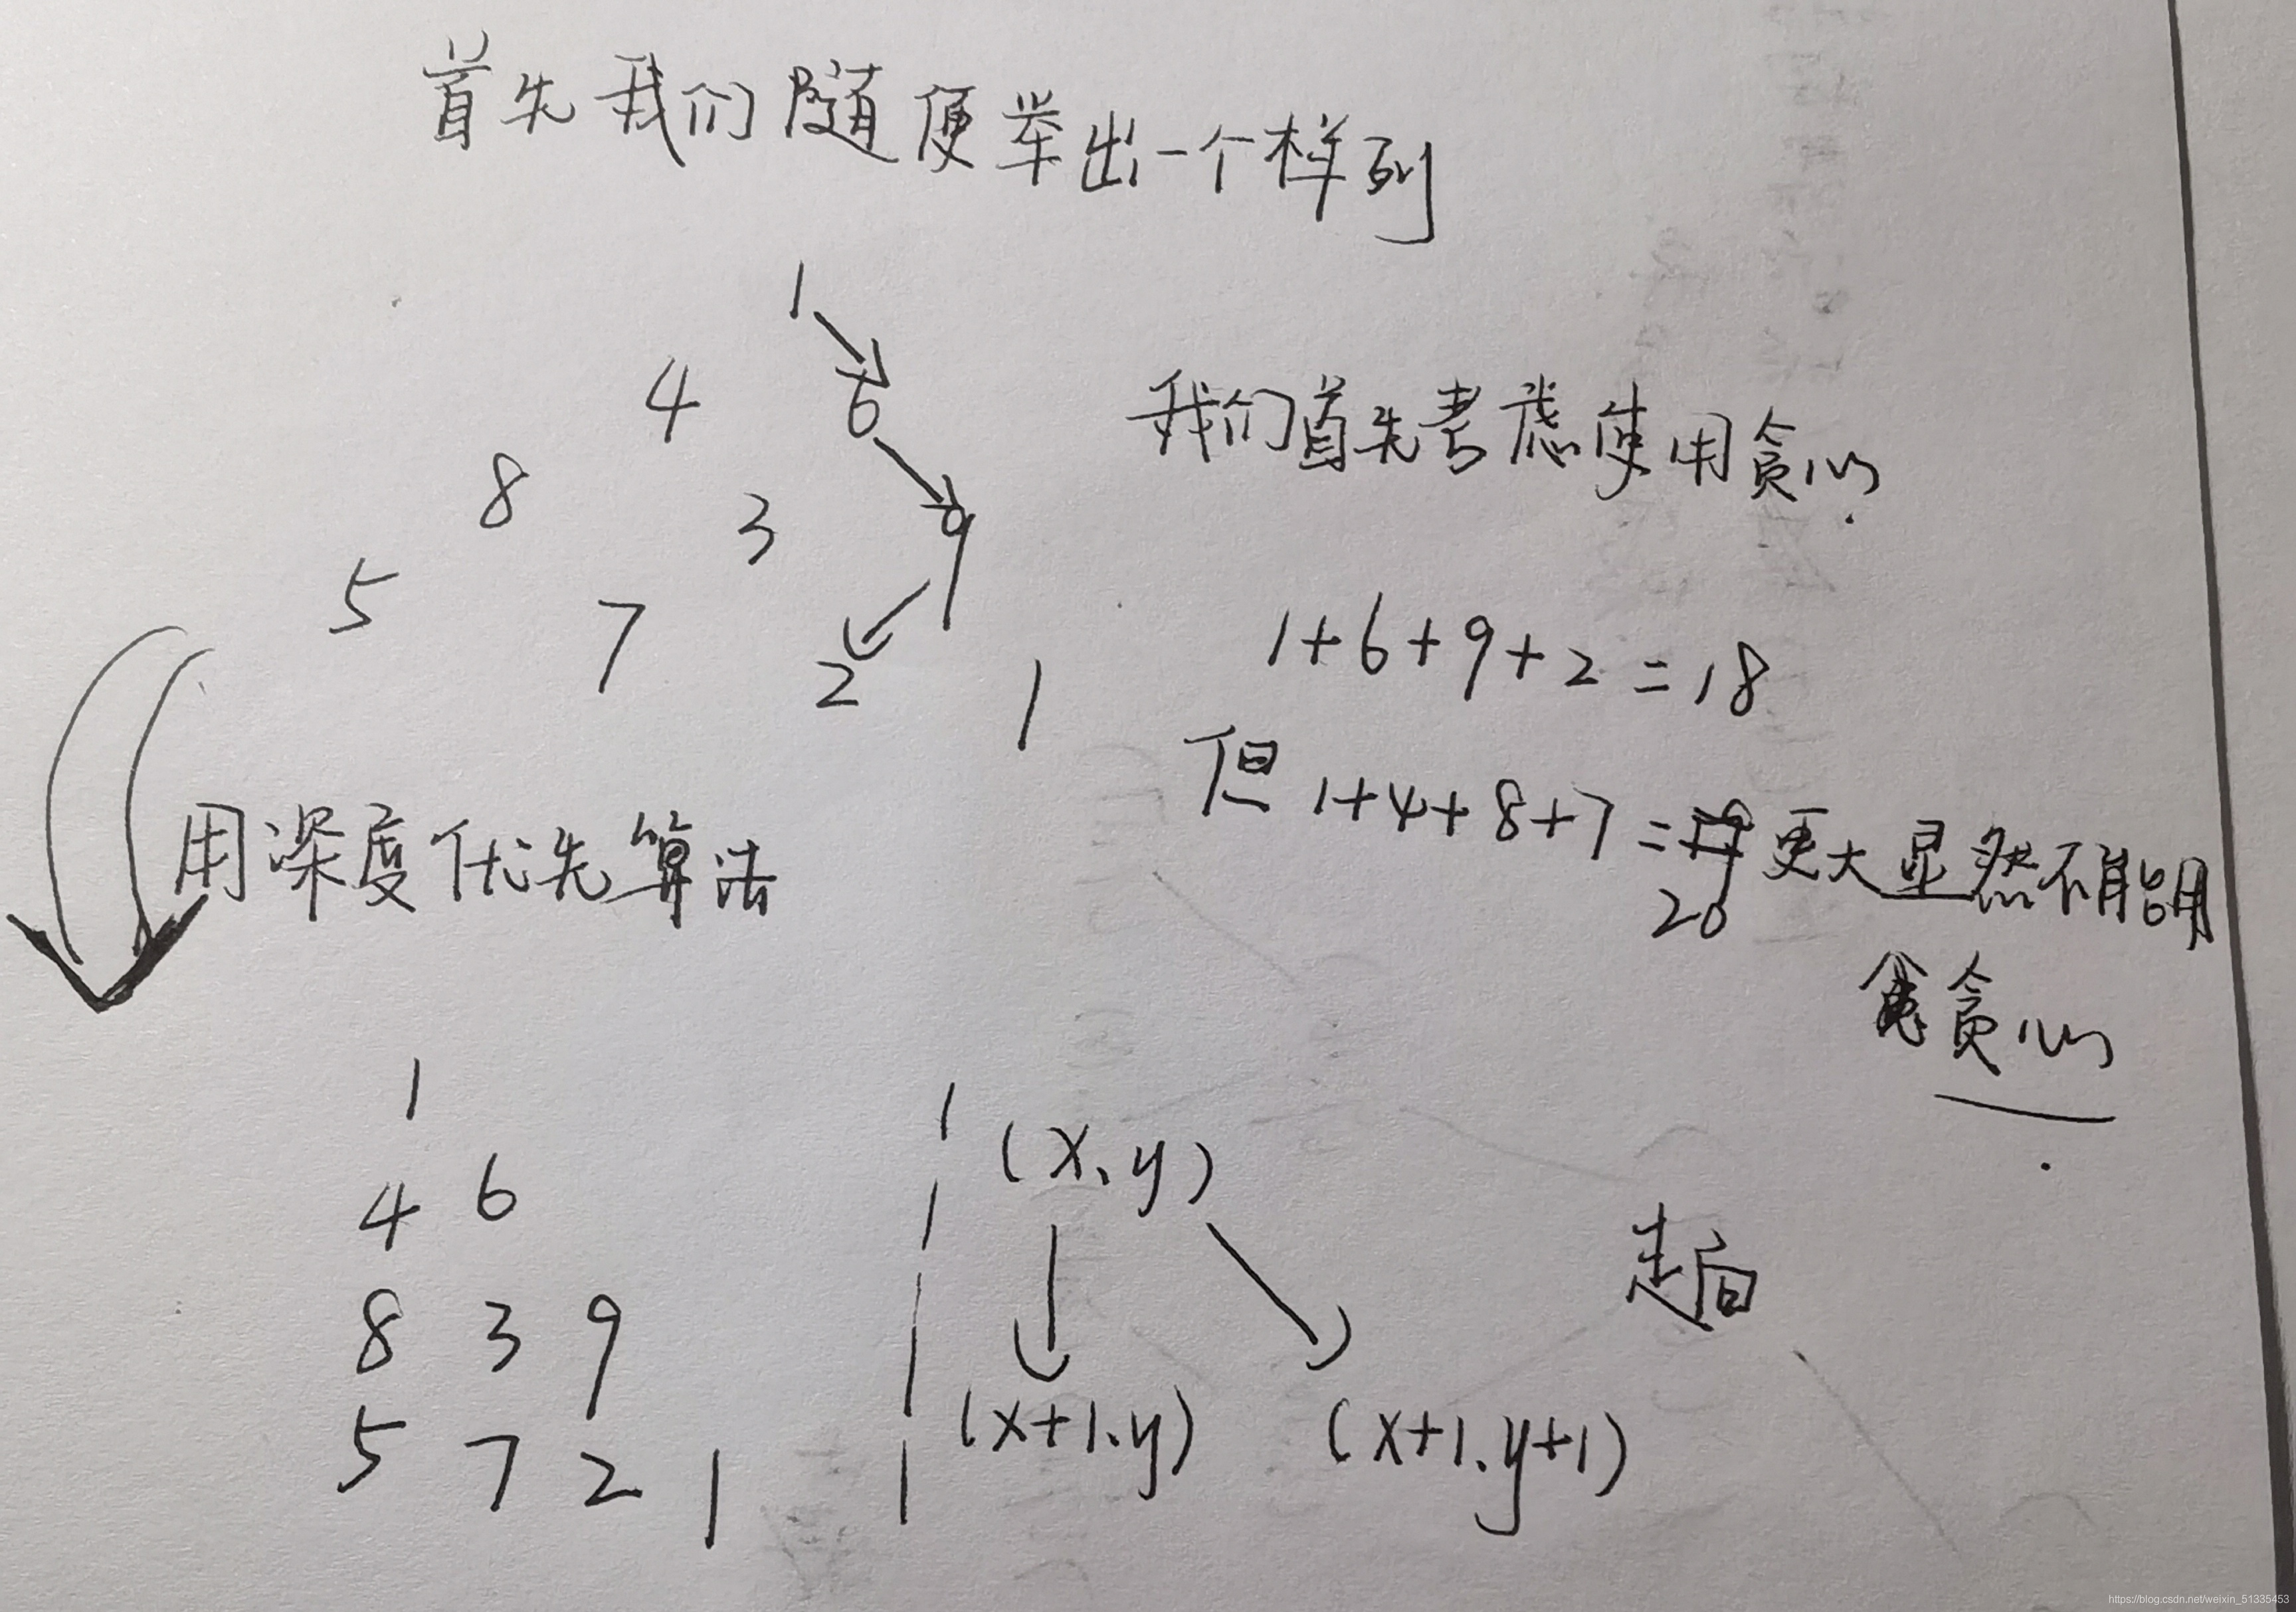 首先我们随便举出一个样列
1
4 6
8 3 9
5 7 2 1
我们首先考虑使用贪心.
1+6+9+2=18
但 1+4+8+7=20 更大显然不能用
贪心.
用深度优先算法
1
4 6
8 3 9
5 7 2 1
(x、y)
(x+1、y) (x+1、y+1)
走向
https://blog.csdn.net/weixin_51335453